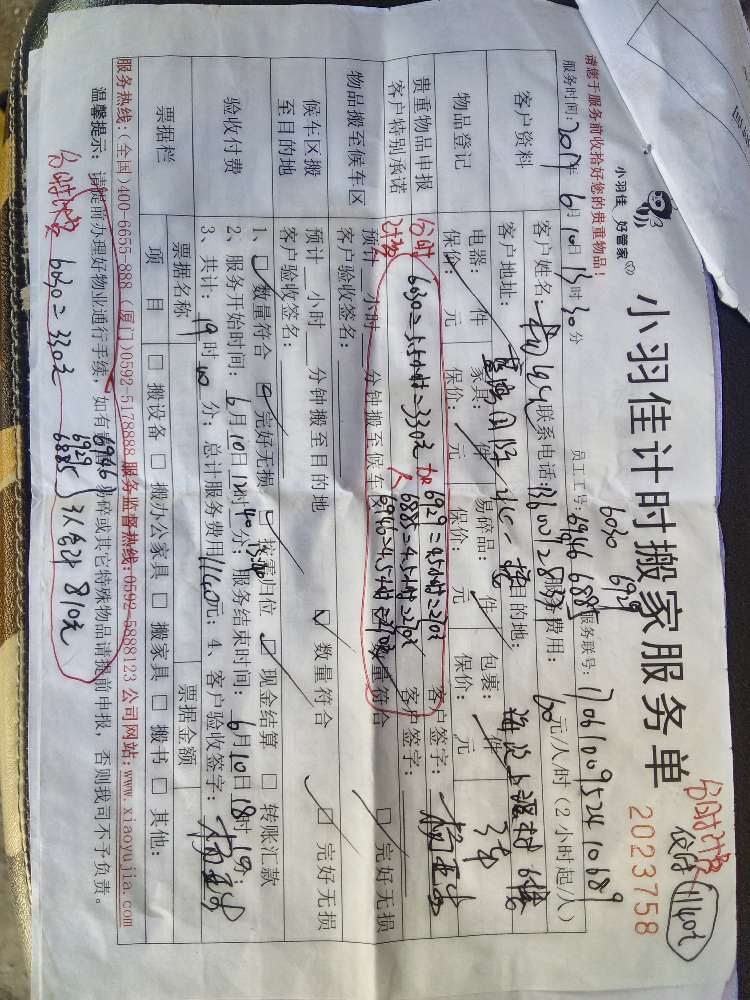 小羽佳计时搬家服务单
2023758
小羽佳 好管家
请您于服务前收拾好您的贵重物品!
分时计费
1140元
6030 6929
服务时间: 2017年6月10日13时30分
员工工号: 6946 6885
服务联号: 17061009524 10689
客户资料
客户姓名:
联系电话:
服务费用: 60元/人/时(2小时起/人)
客户地址:
目的地:
物品登记
电器: 件
家具: 件
易碎品: 件
包裹: 件
保价: 元
保价: 元
保价: 元
保价: 元
贵重物品申报
客户特别承诺
客户签字:
客户签字:
分时计费
6030=5.5小时=330元
6929=4.5小时=270元
6885=4.5小时=270元
6946=4.5小时=270元
物品搬至候车区
预计 小时 分钟搬至候车区
数量符合
完好无损
客户验收签名:
候车区搬至目的地
预计 小时 分钟搬至目的地
数量符合
完好无损
客户验收签名:
验收付费
1、 数量符合 完好无损 按需归位 现金结算 转账汇款
2、服务开始时间: 6月10日12时40分; 服务结束时间: 6月10日18时10分;
13:40
3、共计: 19时40分; 总计服务费用1140元; 4、客户验收签字:
票据栏
票据名称
票据金额
项目
搬设备 搬办公家具 搬家具 搬书 其他:
服务热线:(全国)400-6655-888 (厦门)0592-5178888 服务监督热线:0592-5888123 公司网站:www.xiaoyujia.com
温馨提示: 请提前办理好物业通行手续, 如有 易碎或其它特殊物品请提前申报, 否则我司不予负责。
分时计费 6030=330元
6946
6929
6885
3人合计 810元